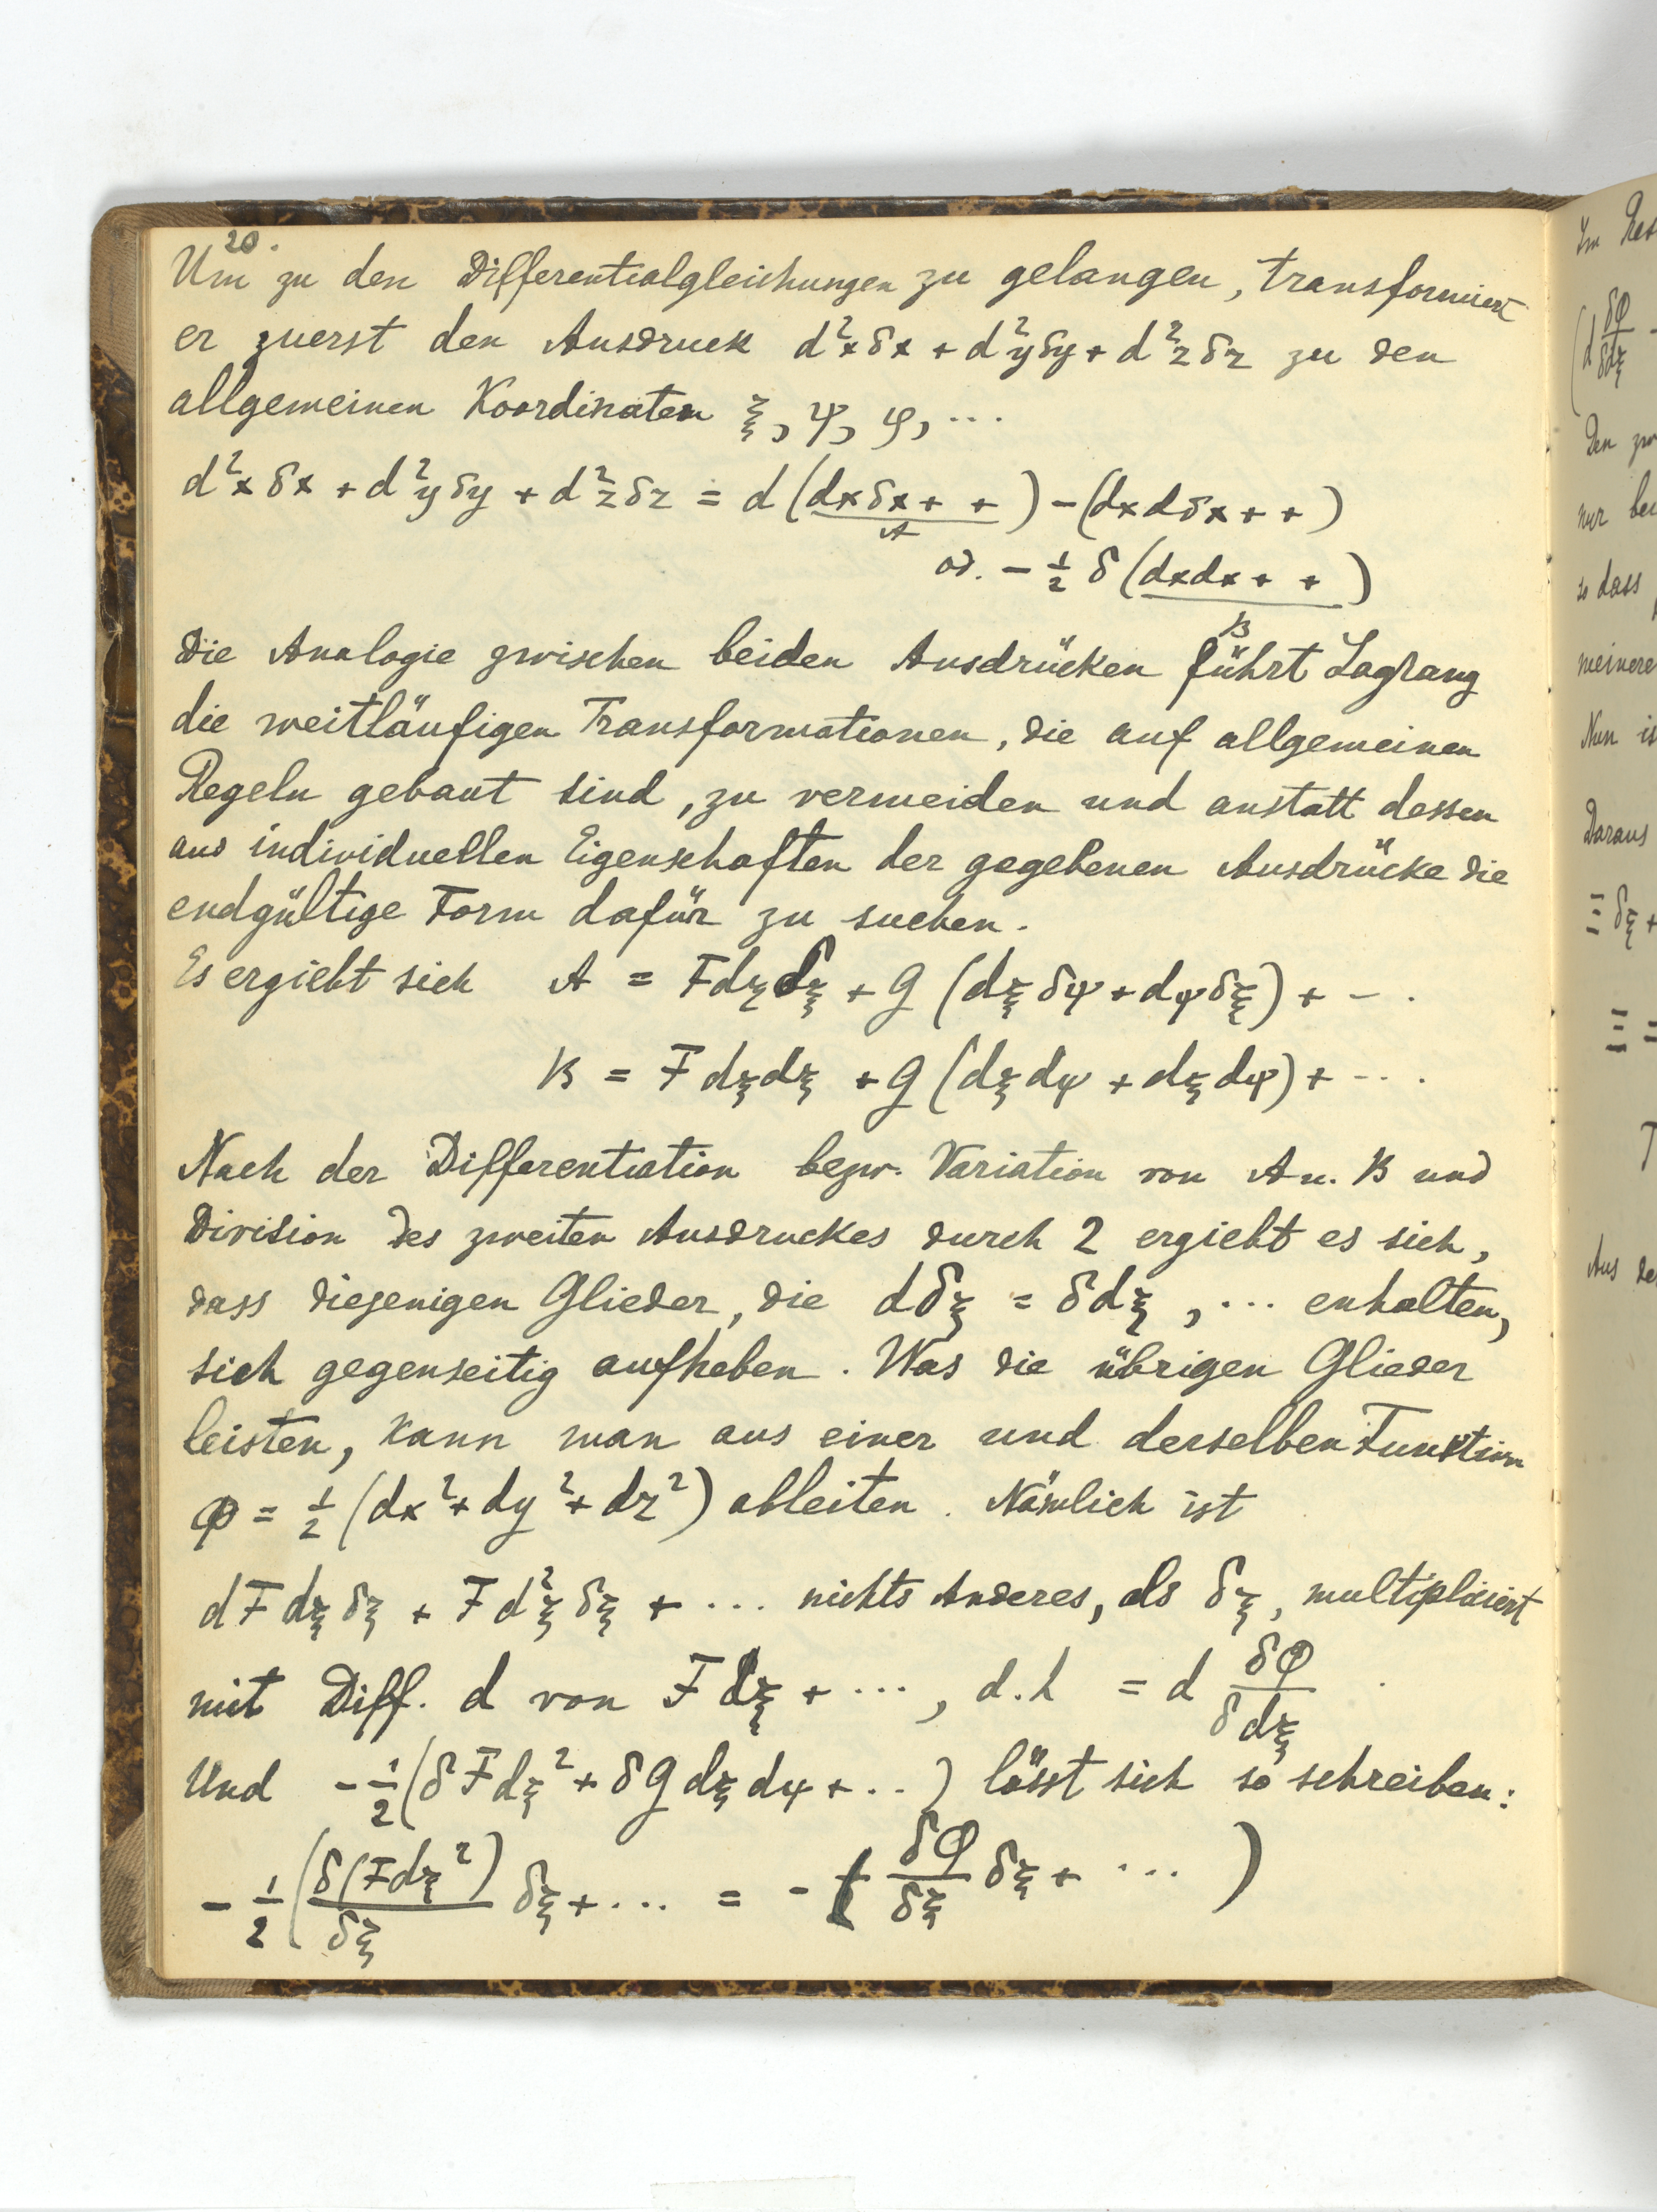 20.
Um zu den Differentialgleichungen zu gelangen, transformiert
er zuerst den Ausdruck d²xδx + d²yδy + d²zδz zu den
allgemeinen Koordinaten ξ, ψ, φ, ...
d²xδx + d²yδy + d²zδz = d(dxδx + +) − (dxdδx + +)
A
od. − ½ δ(dxdx + +)
B
Die Analogie zwischen beiden Ausdrücken führt Lagrang
die weitläufigen Transformationen, die auf allgemeinen
Regeln gebaut sind, zu vermeiden und anstatt dessen
aus individuellen Eigenschaften der gegebenen Ausdrücke die
endgültige Form dafür zu suchen.
Es ergiebt sich A = Fdξδξ + G(dξδψ + dψδξ) + − .
B = Fdξdξ + G(dξdψ + dξdψ) + ...
Nach der Differentiation bezw. Variation von A u. B und
Division des zweiten Ausdruckes durch 2 ergiebt es sich,
dass diejenigen Glieder, die dδξ = δdξ, ... enhalten,
sich gegenseitig aufheben. Was die übrigen Glieder
leisten, kann man aus einer und derselben Funktion
Φ = ½(dx² + dy² + dz²) ableiten. Nämlich ist
dFdξδξ + Fd²ξδξ + ... nichts Anderes, als δξ, multipliciert
mit Diff. d von Fdξ + ..., d.h = d δΦ/δdξ
Und −½(δFdξ² + δGdξdψ + ..) lässt sich so schreiben:
−½(δ(Fdξ²)/δξ δξ + ... = − δΦ/δξ δξ + ... )
Im
(d δΦ/δdξ −
Den
nur
so dass
meinere
Nun is
Daraus
Ξ δξ +
Ξ =
T
Aus de